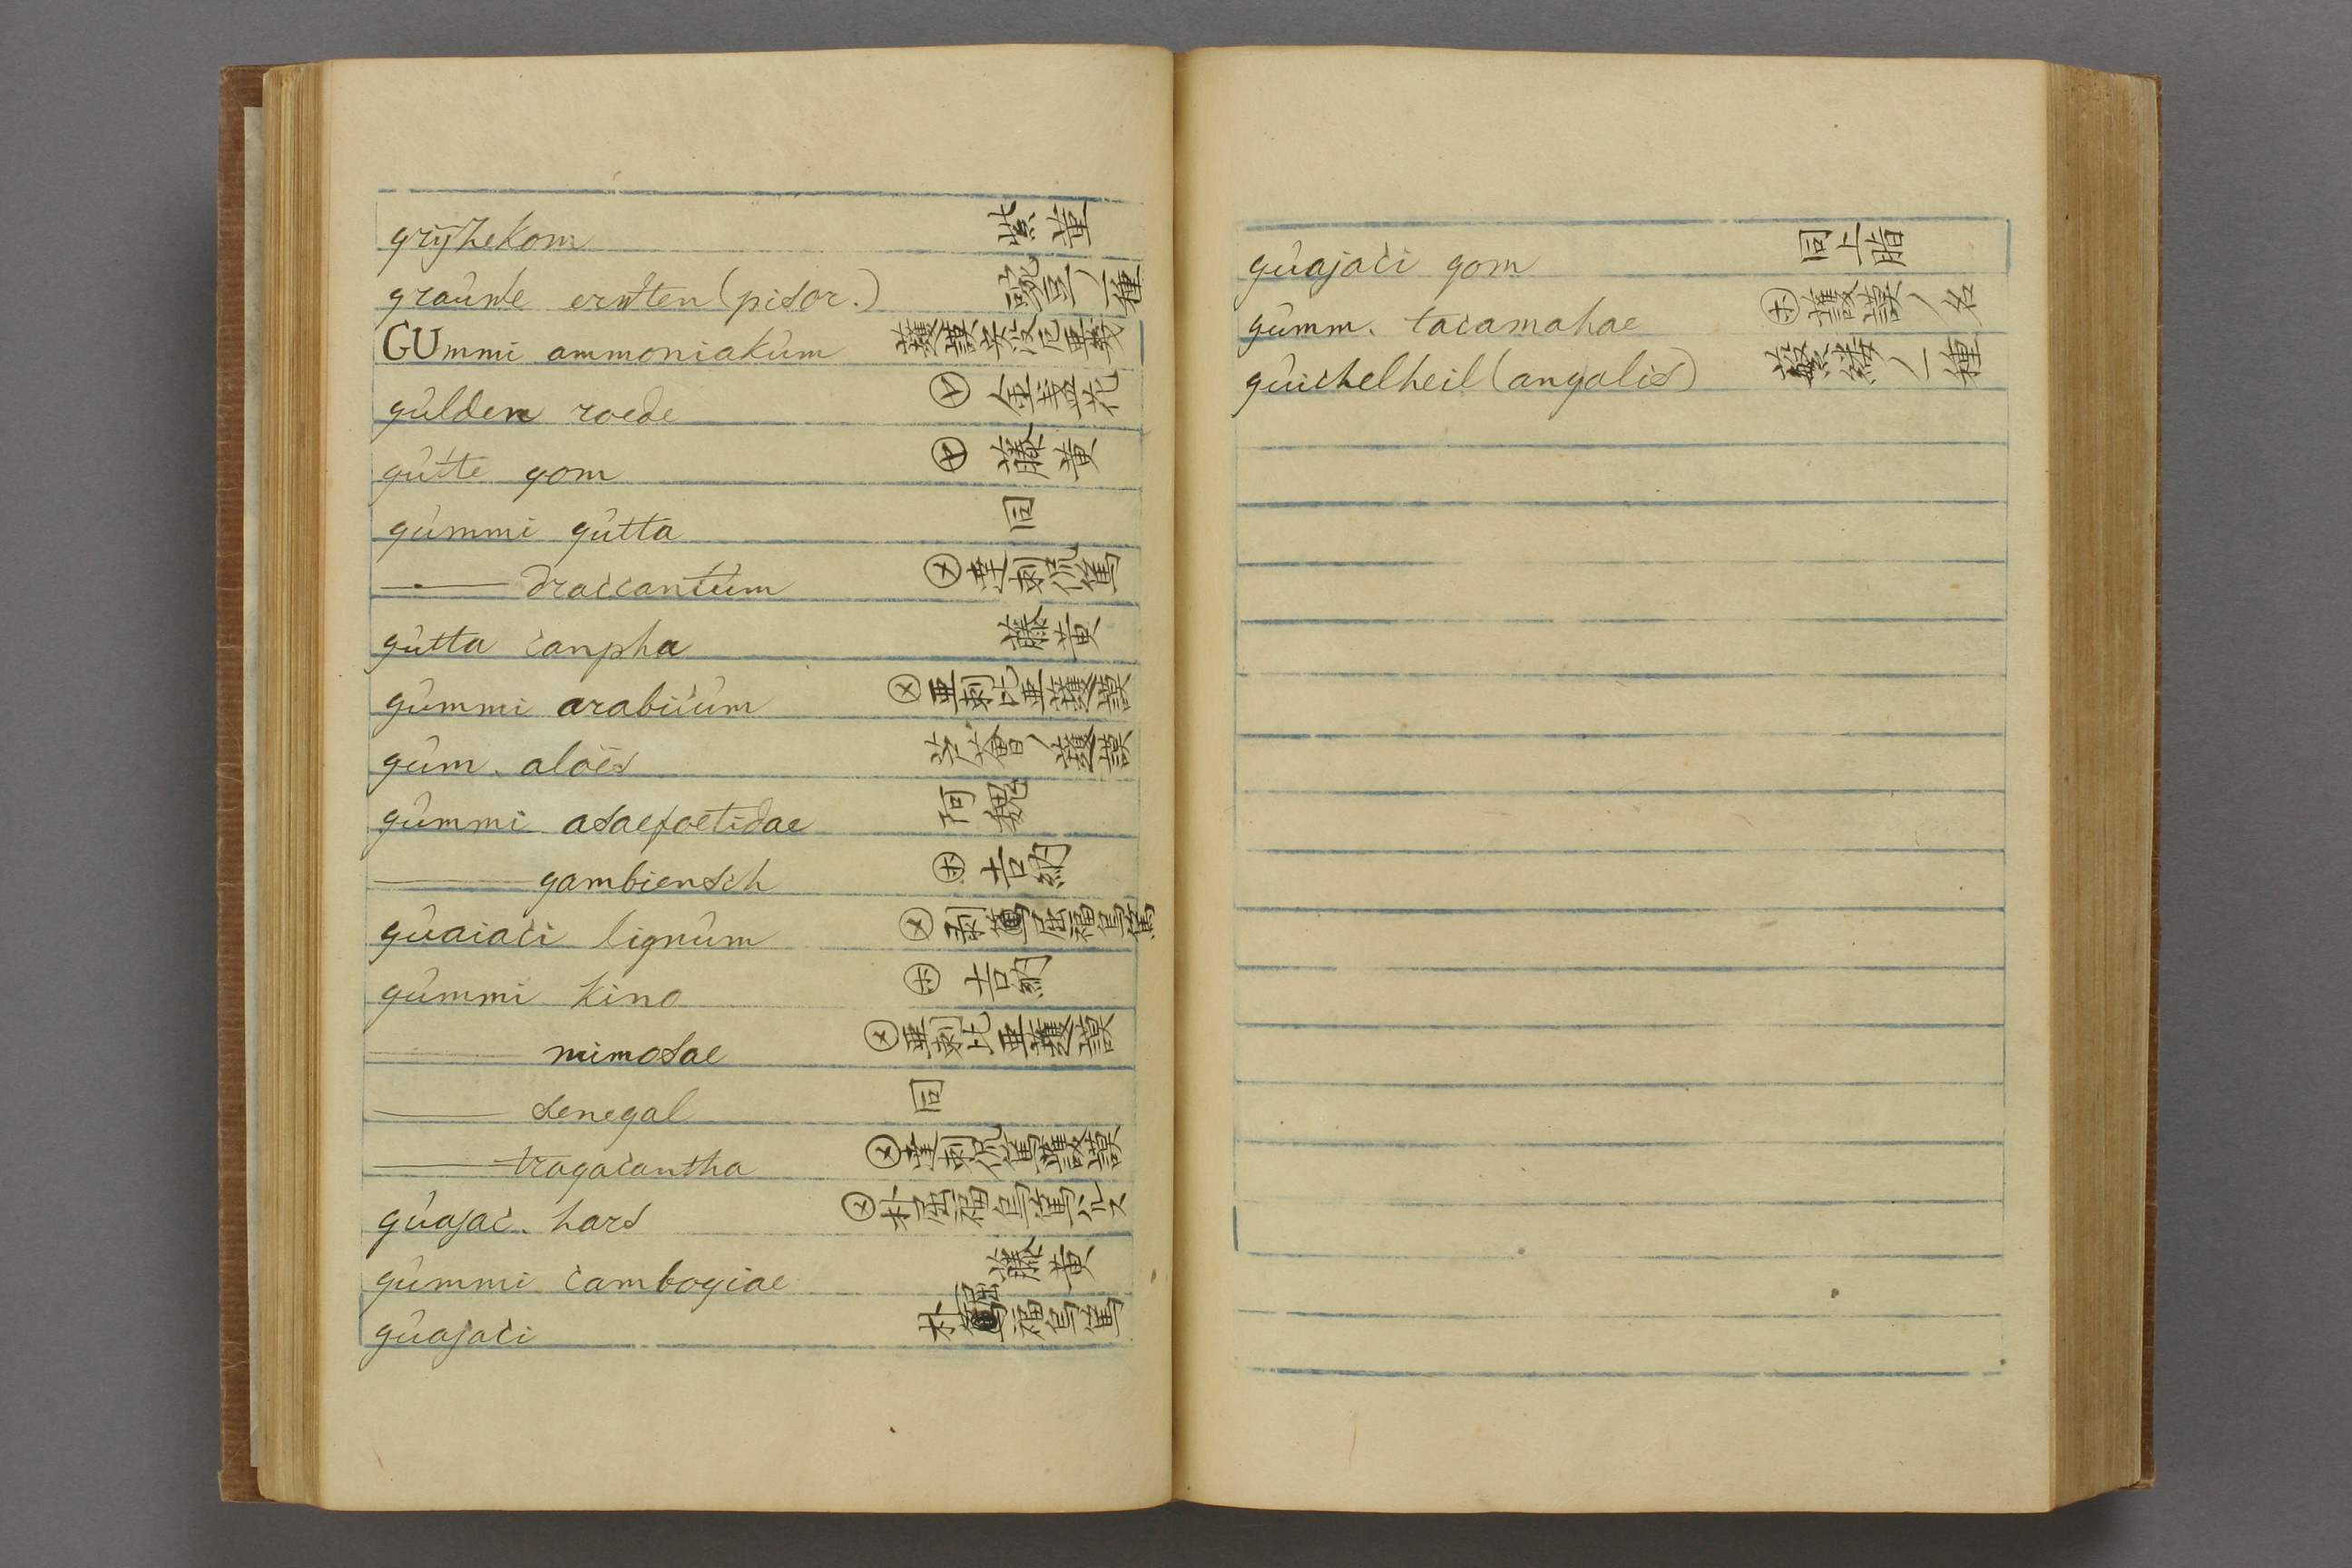 grijzekom 紫菫
graúwe erwten (pisor.) 豌豆ノ一種
GUmmi ammoniakúm 護謨安没厄畢幾
gúlden roede 金盞花
gútte gom 藤黄
gúmmi gútta 同
—— draccantúm ㋱ 達剌侃篤
gútta canpha 藤黄
gúmmi arabicúm ㋱ 亜剌比亜護謨
gúm. aloës 芦薈ノ護謨
gúmmi asaefoetidae 阿魏
—— gambiensch ㋭ 吉納
gúaiaci lignúm ㋱
gúmmi kino ㋭ 吉納
—— mimosae ㋱ 亜剌比亜護謨
—— senegal 同
—— tragacantha ㋱ 達剌侃篤護謨
gúajac. hars ㋱ 朴屈福烏篤
gúmmi cambogiae 藤黄
gúajaci 朴屈福烏篤
gúajaci gom 同上脂
gúmm. tacamahae ㋭ 護謨ノ名
gúichelheil (angalis) 蘩縷ノ一種